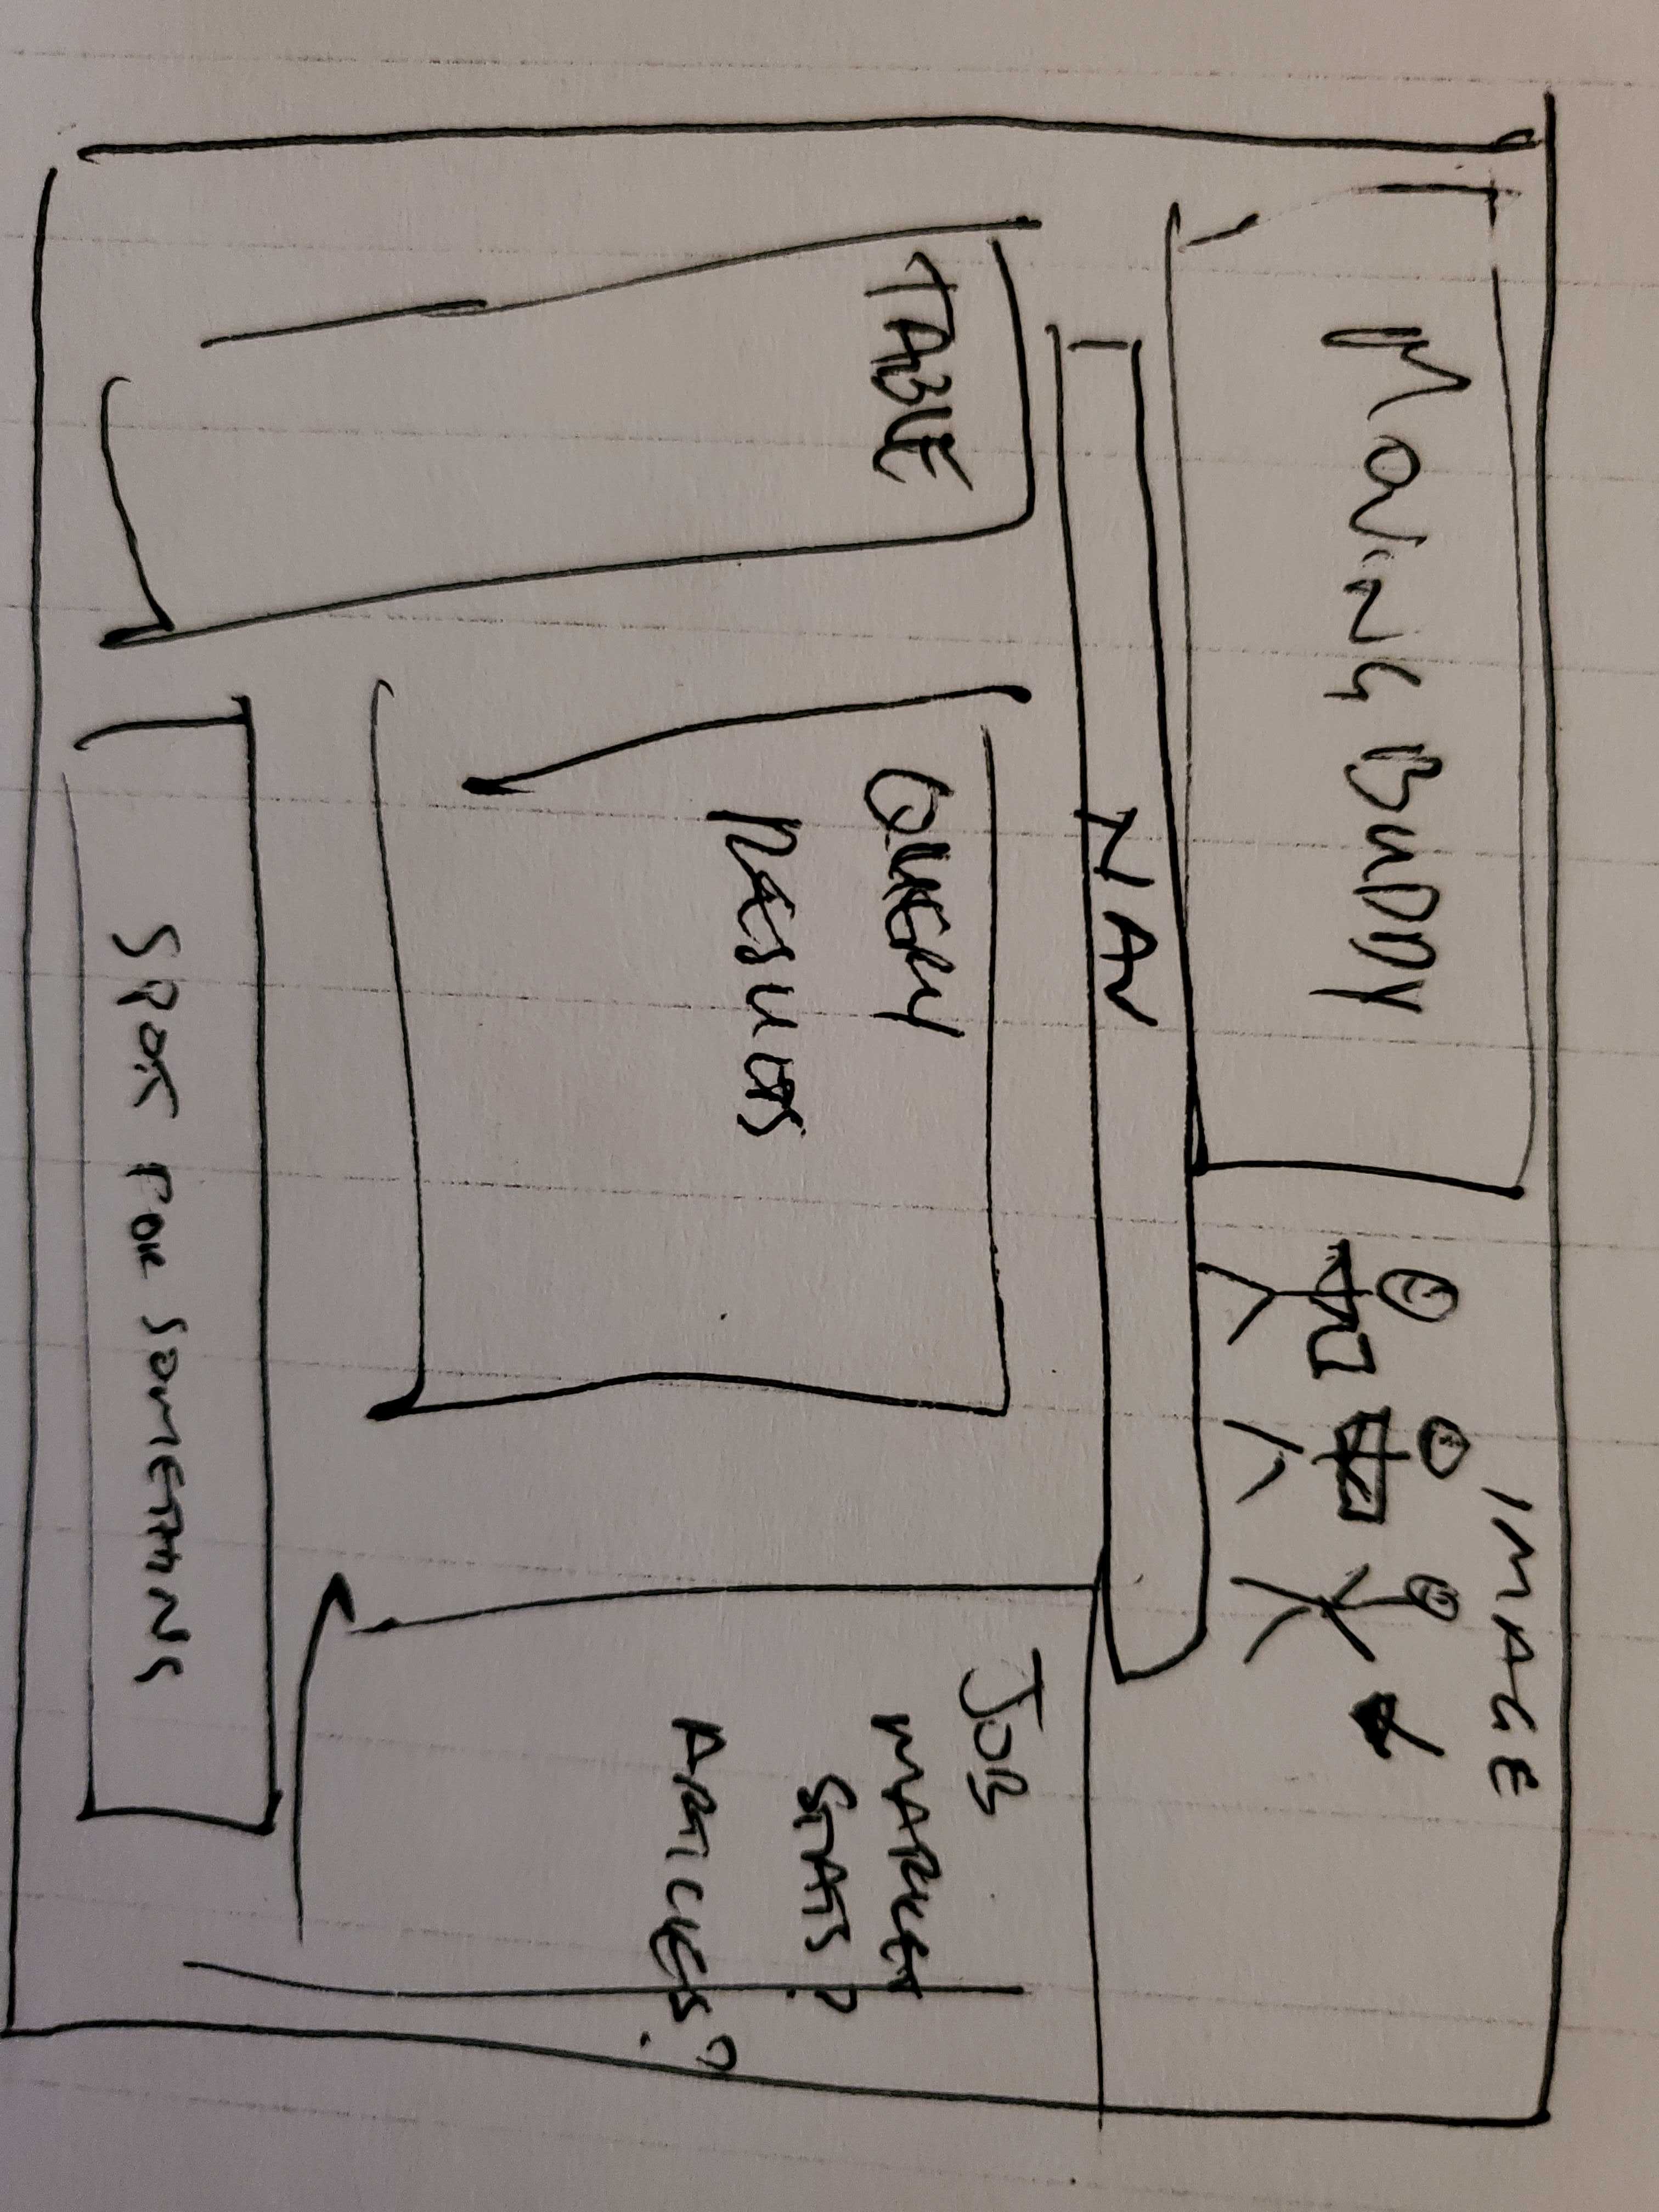 MOVING BUDDY
IMAGE
NAV
TABLE
QUERY
RESULTS
JOB
MARKET
STATS?
ARTICLES?
SPOT FOR SOMETHING